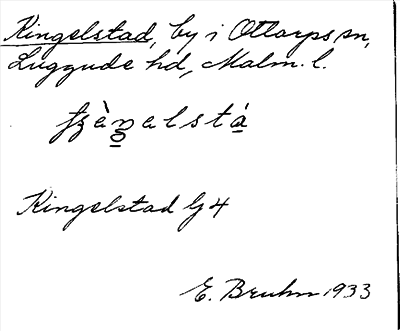 Kingelstad, by i Ottarps sn,
Luggude hd, Malm. l.
Kingelstad G4
E. Bruhn 1933